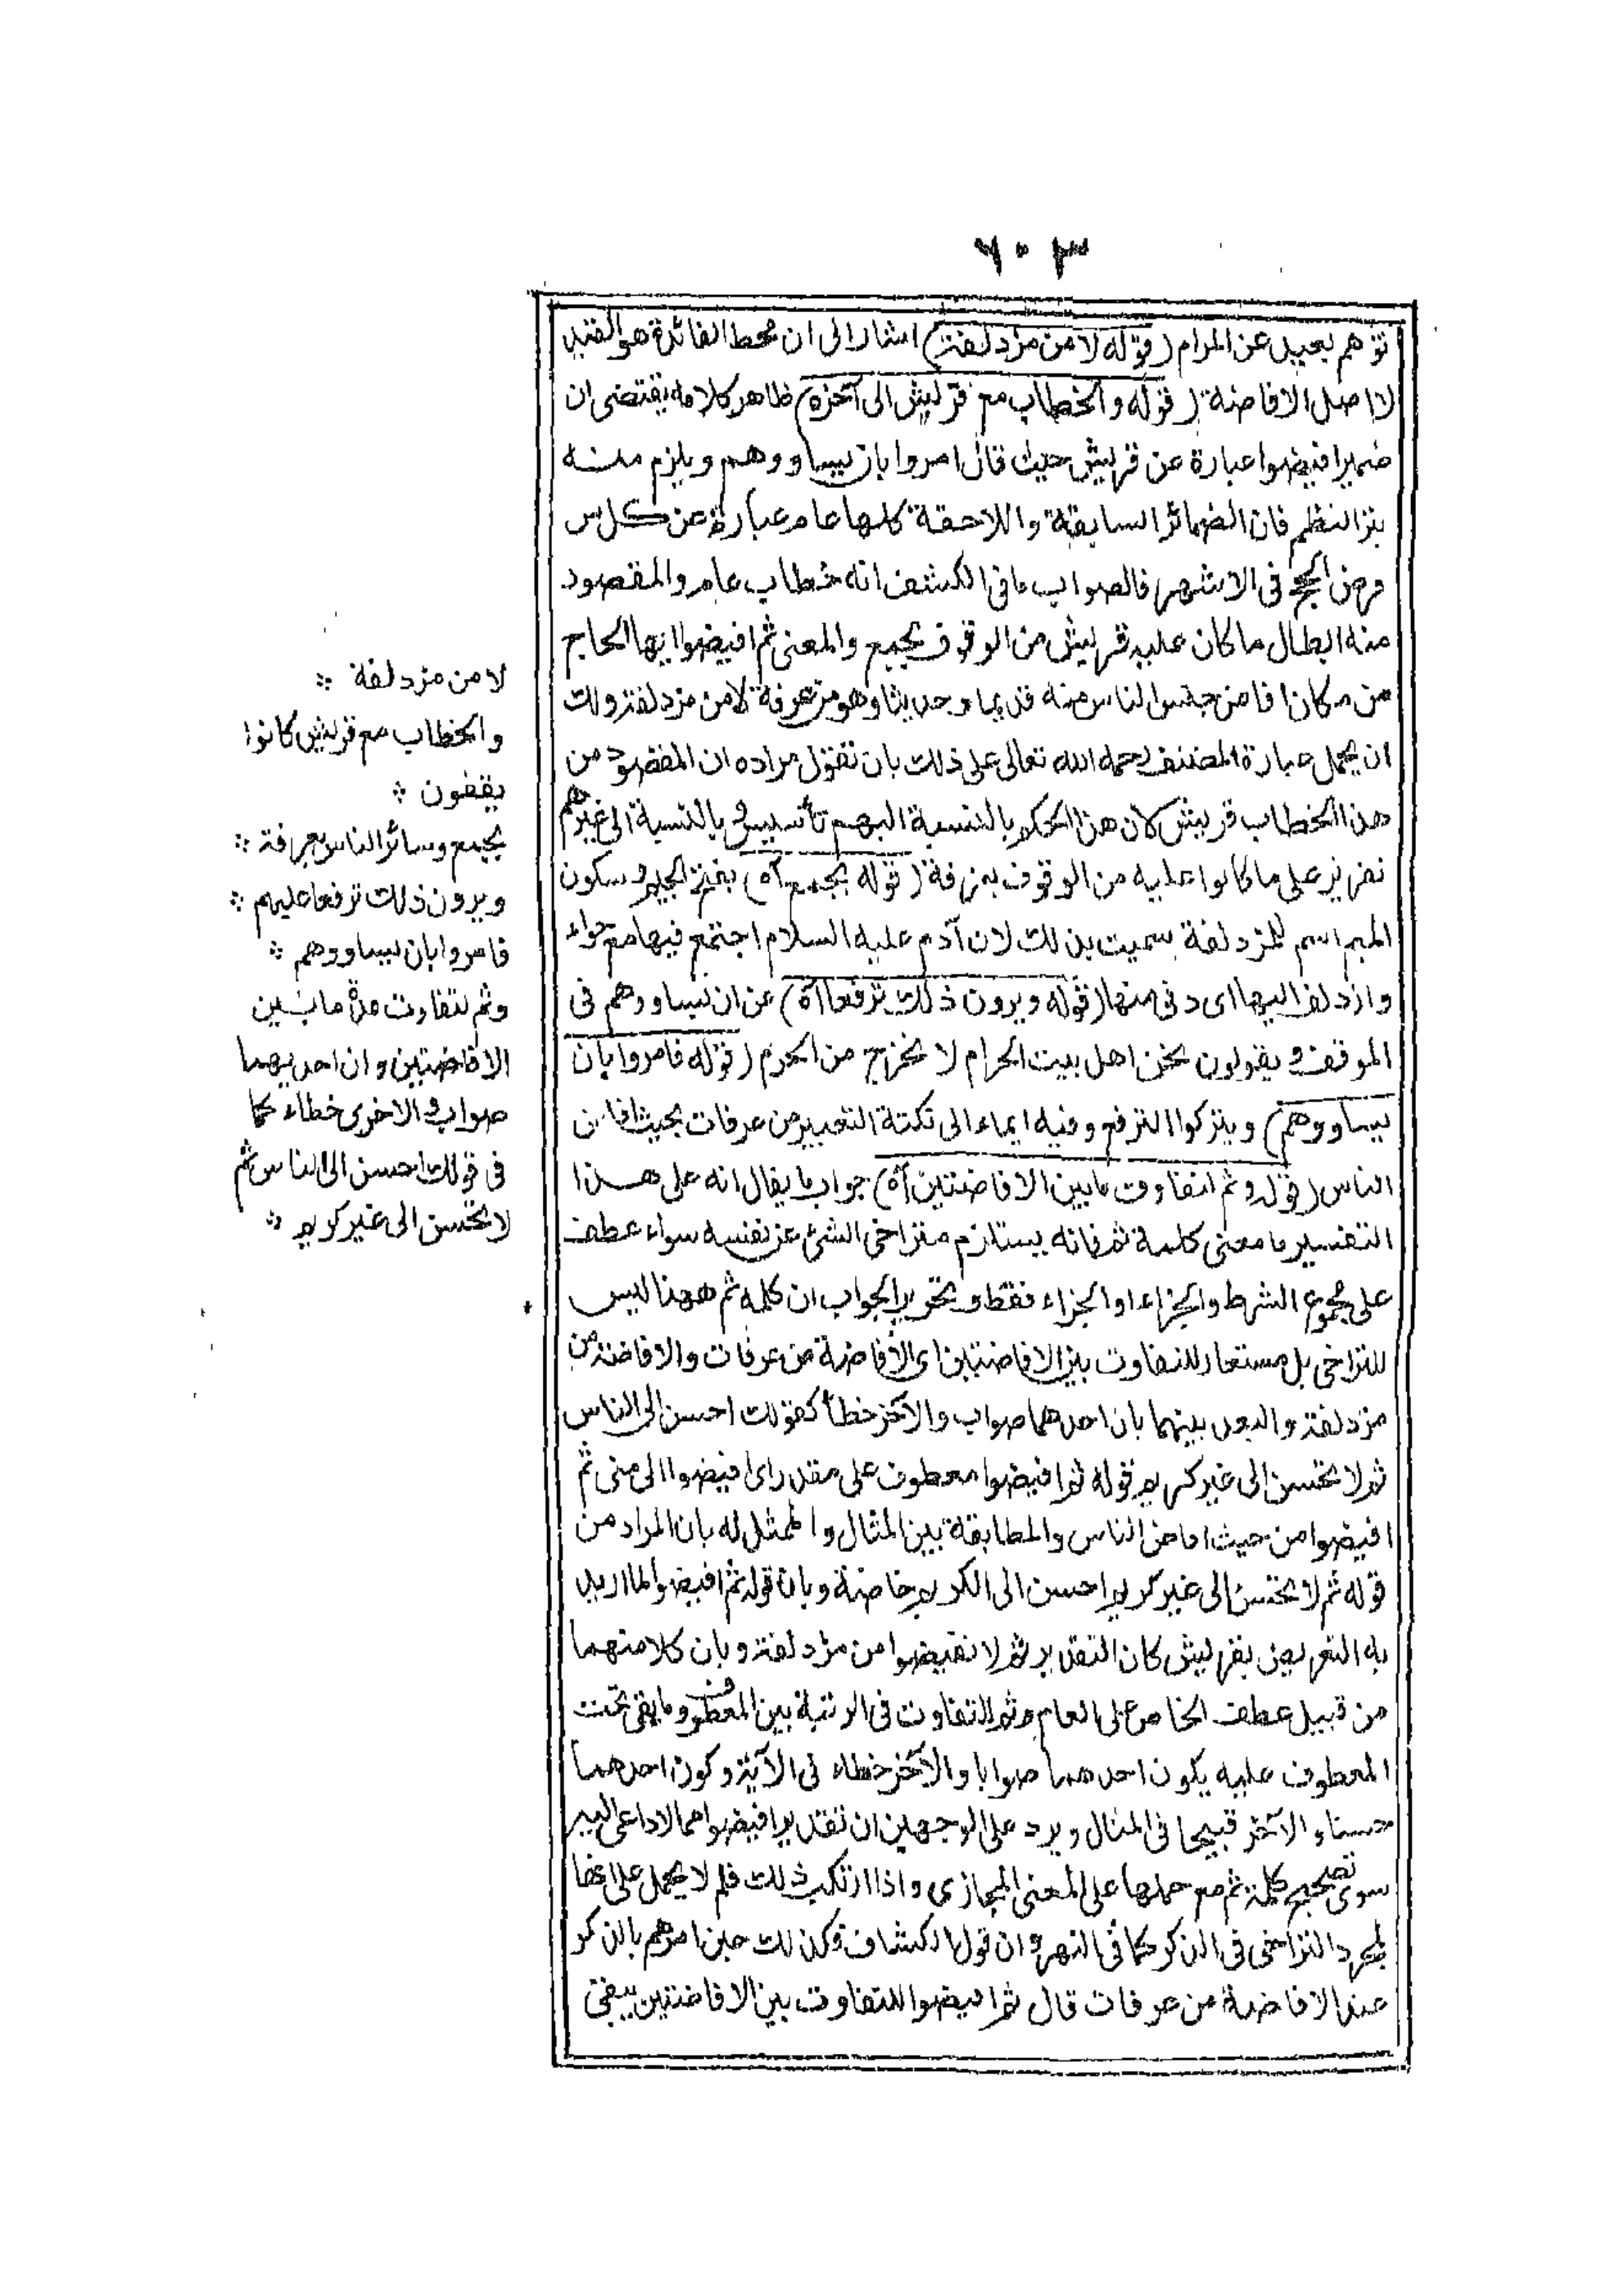 ٦٠٣
توهم بعيد عن المرام (قوله لا من مزدلفة) اشار الى ان محط الفائدة هو القيد
لا اصل الافاضة (قوله والخطاب مع قريش الى آخره) ظاهر كلامه يقتضى ان
ضمير افيضوا عبارة عن قريش حيث قال امروا بان يساووهم ويلزم منه
بتر النظم فان الضمائر السابقة واللاحقة كلها عام عبارة عن كل من
فرض الحج فى الاشهر فالصواب ما فى الكشف انه خطاب عام والمقصود
منه ابطال ما كان عليه قريش من الوقوف بجمع والمعنى ثم افيضوا ايها الحاج
من مكان افاض جنس الناس منه قديما وحديثا وهو من عرفة لا من مزدلفة ولك
ان يحمل عبارة المصنف رحمه الله تعالى على ذلك بان تقول مراده ان المقصود من
هذا الخطاب قريش لان هذا الحكم بالنسبة اليهم تأسيس و بالنسبة الى غيرهم
تقرير على ما كانوا عليه من الوقوف بعرفة (قوله بجمع آه) بفتح الجيم وسكون
الميم اسم للمزدلفة سميت بذلك لان آدم عليه السلام اجتمع فيها مع حواء
وازدلف اليها اى دنى منها (قوله ويرون ذلك ترفعا آه) عن ان يساووهم فى
الموقف ويقولون نحن اهل بيت الحرام لا نخرج من الحرم (قوله فامروا بان
يساووهم) ويتركوا الترفع وفيه ايماء الى نكتة التعبير من عرفات بحيث افاض
الناس (قوله وثم لتفاوت ما بين الافاضتين آه) جواب ما يقال انه على هذا
التفسير ما معنى كلمة ثم فانه يستلزم تراخى الشئ عن نفسه سواء عطف
على مجموع الشرط والجزاء او الجزاء فقط وتحرير الجواب ان كلمة ثم ههنا ليس
للتراخى بل مستعار للتفاوت بين الافاضتين اى الافاضة من عرفات والافاضة من
مزدلفة والبعد بينهما بان احدهما صواب والآخر خطأ كقولك احسن الى الناس
ثم لا تحسن الى غير كريم قوله ثم افيضوا معطوف على مقدر اى افيضوا الى منى ثم
افيضوا من حيث افاض الناس والمطابقة بين المثال والممثل له بان المراد من
قوله ثم لا تحسن الى غير كريم احسن الى الكريم خاصة وبان قوله ثم افيضوا لما اريد
به التعريض بقريش كان التقدير ثم لا تفيضوا من مزدلفة وبان كلا منهما
من قبيل عطف الخاص على العام وثم للتفاوت فى الرتبة بين المعطوف وما بقى تحت
المعطوف عليه يكون احدهما صوابا والآخر خطاء فى الآية وكون احدهما
حسنا والآخر قبيحا فى المثال ويرد على الوجهين ان تقدير افيضوا مما لا داعى اليه
سوى تصحيح كلمة ثم مع حملها على المعنى المجازى واذا ارتكب ذلك فلم لا يحمل على انها
لمجرد التراخى فى الذكر كما فى النهر وان قول الكشاف وكذلك حين امرهم بالذكر
عند الافاضة من عرفات قال ثم افيضوا لتفاوت بين الافاضتين يبقى
لا من مزدلفة
والخطاب مع قريش كانوا
يقفون
بجمع وسائر الناس بعرفة
ويرون ذلك ترفعا عليهم
فامروا بان يساووهم
وثم لتفاوت ما بين
الافاضتين وان احديهما
صواب والاخرى خطاء كما
فى قولك احسن الى الناس ثم
لا تحسن الى غير كريم